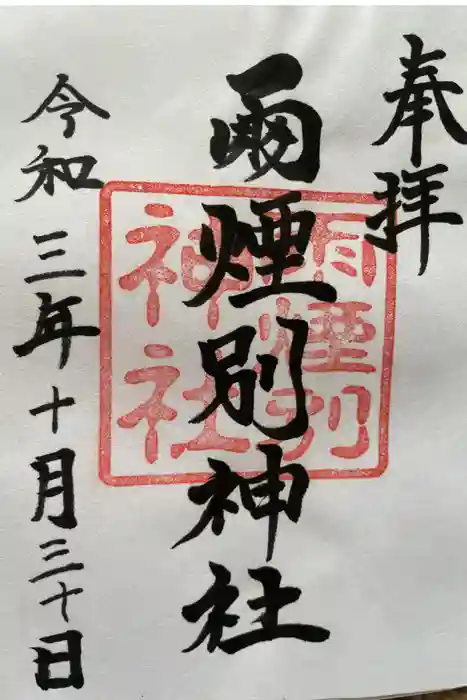 奉拝
雨煙別神社
令和三年十月三十日
雨煙別
神社